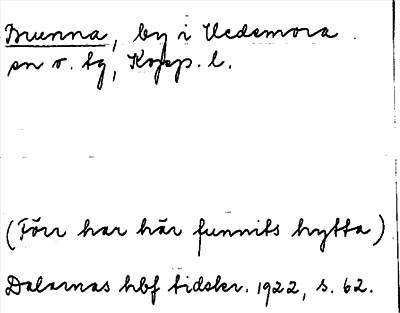 Brunna, by i Hedemora
sn o. tg, Kopp. l.
(Förr har här funnits hytta)
Dalarnas hbf tidskr. 1922, s. 62.